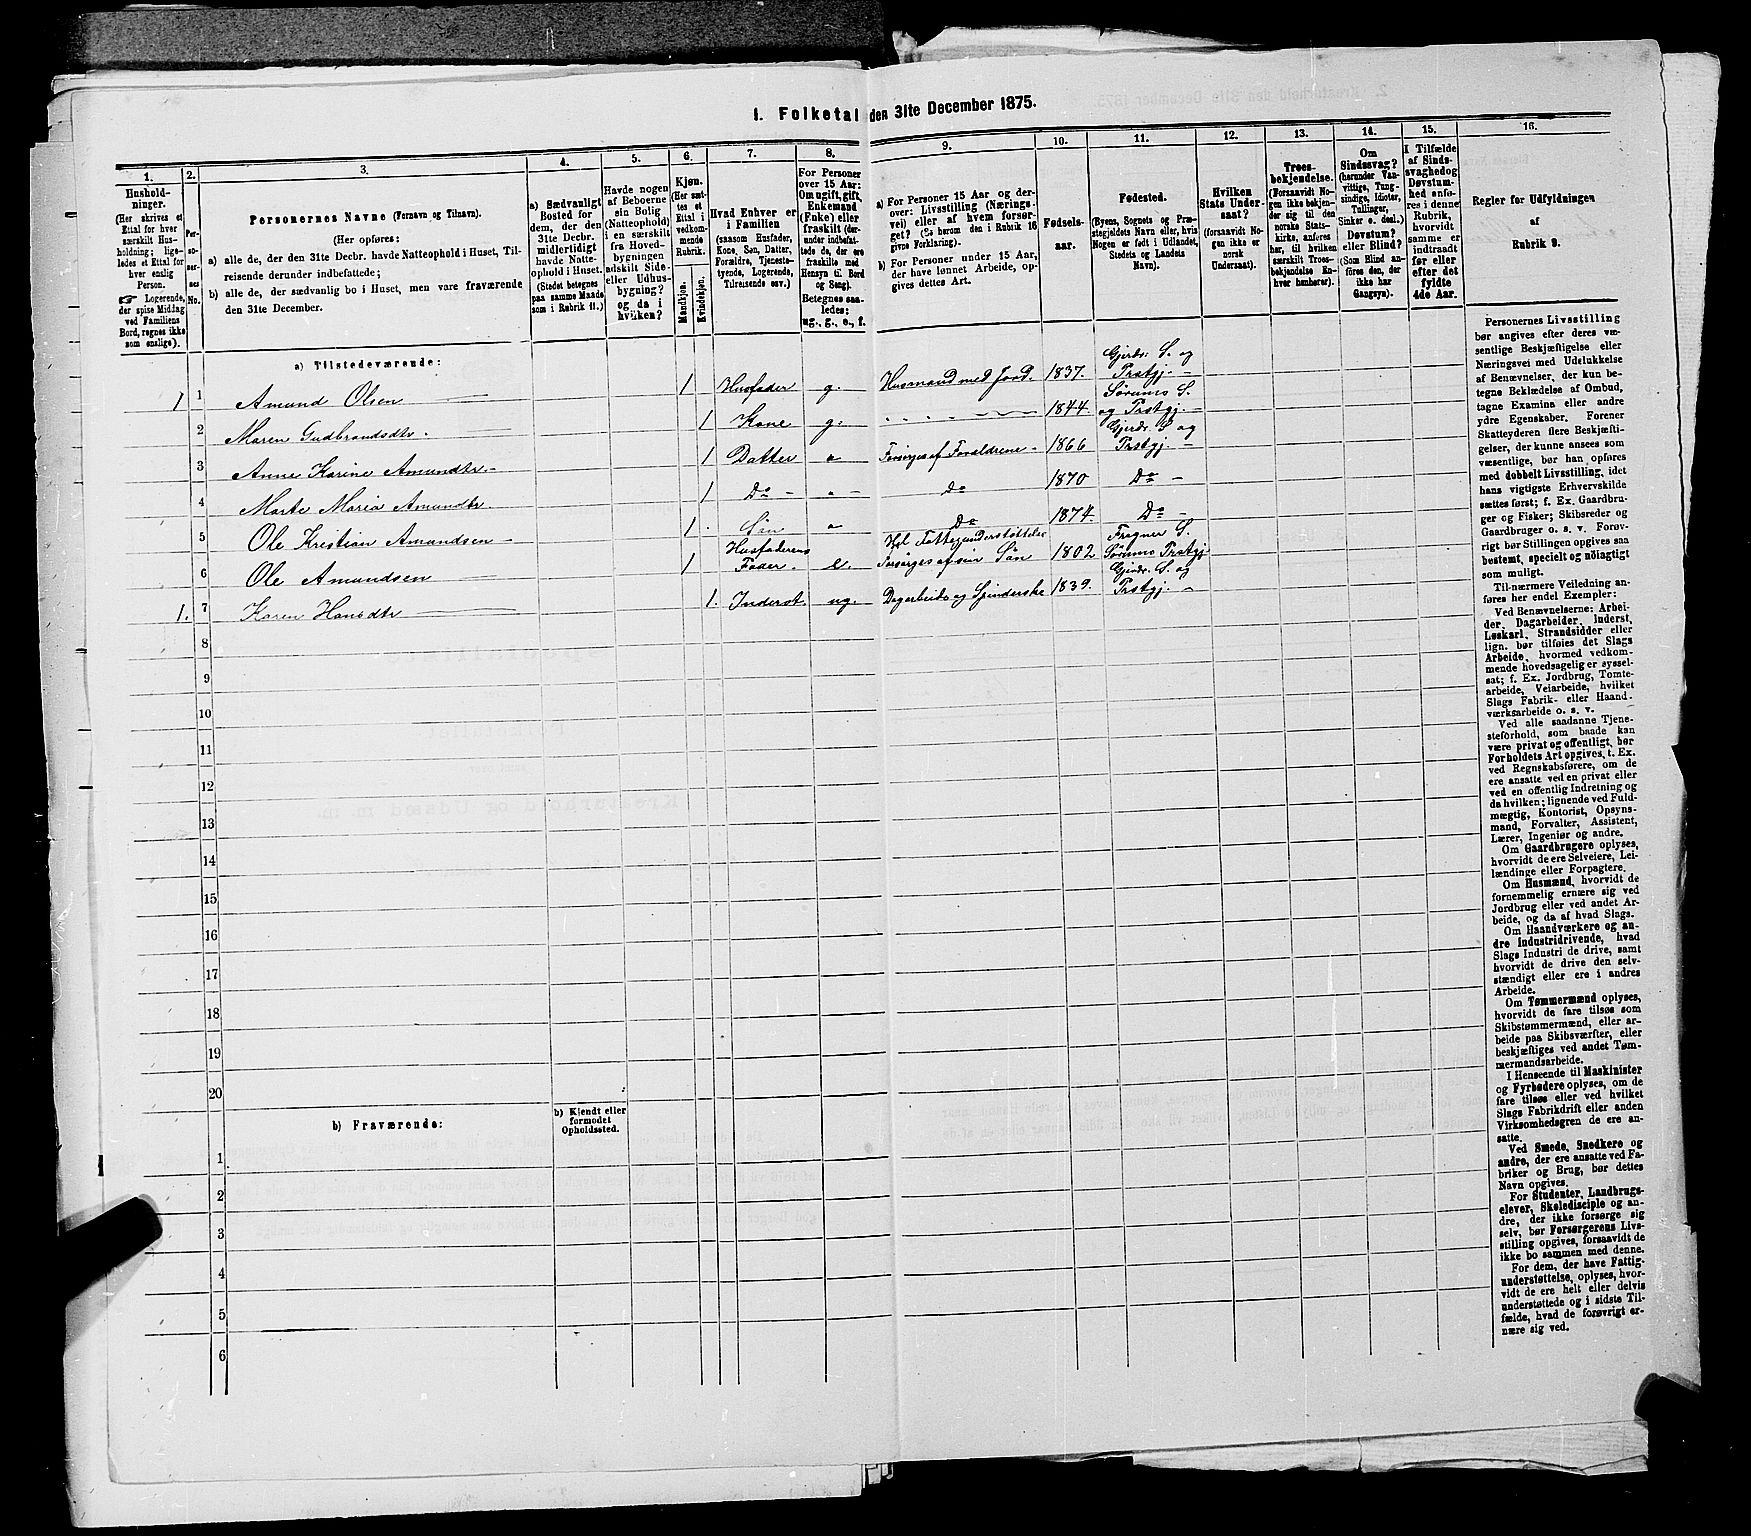 1. Folketal den 31te December 1875.
1.
Hushold-
ninger.
(Her skrives et
Ettal for hver
særskilt Hus-
holdning; lige-
ledes et Ettal for
hver enslig
Person.
☞ Logerende,
der spise Middag
ved Familiens
Bord, regnes ikke
som enslige).
2.
Per-
so-
ner-
nes
No.
3.
Personernes Navne (Fornavn og Tilnavn).
(Her opføres:
a) alle de, der den 31te Decbr. havde Natteophold i Huset, Til-
reisende derunder indbefattede;
b) alle de, der sædvanlig bo i Huset, men vare fraværende
den 31te December.
4.
a) Sædvanligt
Bosted for
dem, der den
31te Decbr.
midlertidigt
havde Natte-
ophold i Huset.
(Stedet betegnes
paa samme Maade
som i Rubrik 11.)
5.
Havde nogen
af Beboerne
sin Bolig
(Natteophold)
i en særskilt
fra Hoved-
bygningen
adskilt Side-
eller Udhus-
bygning?
og da i
hvilken?
6.
Kjøn.
(Her sæt-
tes et
Ettal i
vedkom-
mende
Rubrik.
Mandkjøn.
Kvindekjøn.
7.
Hvad Enhver er
i Familien
(saasom Husfader,
Kone, Søn, Datter,
Forældre, Tjeneste-
tyende, Logerende,
Tilreisende osv.)
8.
For Personer
over 15 Aar:
Om ugift, gift,
Enkemand
(Enke) eller
fraskilt (der-
under indbefat-
tede de, der ere
fraskilte med
Hensyn til Bord
og Seng).
Betegnes saa-
ledes:
ug., g., e., f.
9.
a) For Personer 15 Aar og der-
over: Livsstilling (Nærings-
vei) eller af hvem forsør-
get? (Se herom den i Rubrik 16
givne Forklaring).
b) For Personer under 15 Aar,
der have lønnet Arbeide, op-
gives dettes Art.
10.
Fødsels-
aar.
11.
Fødested.
(Byens, Sognets og Præ-
stegjeldets Navn eller, hvis
Nogen er født i Udlandet,
Stedets og Landets
Navn).
12.
Hvilken
Stats Under-
saat?
(forsaavidt No-
gen ikke er
norsk
Undersaat).
13.
Troes-
bekjendelse.
(Forsaavidt No-
gen ikke bekjen-
der sig til den
norske Stats-
kirke, anføres
her, til hvilken
særskilt Troes-
bekjendelse En-
hver henhører).
14.
Om
Sindssvag?
(herunder Van-
vittige, Tung-
sindige, Idioter,
Tullinger,
Sinker o. desl.)
Døvstum?
eller Blind?
(Som Blind an-
føres den, der
ikke har
Gangsyn).
15.
I Tilfælde
af Sinds-
svaghed og
Døvstum-
hed anfø-
res i denne
Rubrik,
hvorvidt
samme er
indtraadt
før eller
efter det
fyldte
4de Aar.
16.
Regler for Udfyldningen
af
Rubrik 9.
a) Tilstedeværende:
1 1 Amund Olsen 1 Husfader g. Husmand med Jord. 1837. Gjerdr. S. og Prstgj. -
2 Maren Gudbrandsdtr. 1 Kone g. 1844. Sørums S. og Prstgj. -
3 Anne Karine Amundtr - 1 Datter Forsørges af Forældrene - 1866 Gjerdr. S og Prstgj -
4 Marte Maria Amundtr. 1 Do - Do 1870 Do -
5 Ole Kristian Amundsen - 1 Søn Do 1874. Do -
6 Ole Amundsen 1 Husfaderens Fader. e. Fattigunderstøttelse Forsørges af sin Søn 1802 Frogner S. Sørums Prstgj
1. 7 Karen Hansdtr 1. Inderst ug. Dagarbeide og Spinderske 1839. Gjerdr. S. og Prstgj. -
8
9
10
11
12
13
14
15
16
17
18
19
20
b) Fraværende:
b) Kjendt eller
formodet
Opholdssted.
1
2
3
4
5
6
Personernes Livsstilling
bør angives efter deres væ-
sentlige Beskjæftigelse eller
Næringsvei med Udelukkelse
af Benævnelser, der kun be-
tegne Beklædelse af Ombud,
tagne Examina eller andre
ydre Egenskaber. Forener
Skatteyderen flere Beskjæfti-
gelser, der kunne ansees som
væsentlige, bør han opføres
med dobbelt Livsstilling, idet
hans vigtigste Erhvervskilde
sættes først; f. Ex. Gaardbru-
ger og Fisker; Skibsreder og
Gaardbruger o. s. v. Forøv-
rigt bør Stillingen opgives saa
bestemt, specielt og nöiagtigt
som muligt.
Til nærmere Veiledning an-
føres her endel Exempler:
Ved Benævnelserne: Arbei-
der, Dagarbeider, Inderst,
Løskarl, Strandsidder eller
lign. bør tilføies det Slags
Arbeide, hvormed vedkom-
mende hovedsagelig er syssel-
sat; f. Ex. Jordbrug, Tomte-
arbeide, Veiarbeide, hvilket
Slags Fabrik- eller Haand-
værksarbeide o. s. v.
Ved alle saadanne Tjene-
steforhold, som baade kan
være privat og offentligt, bør
Forholdets Art opgives, t. Ex.
ved Regnskabsførere, om de
ere ansatte ved en privat eller
ved en offentlig Indretning og
da hvilken; lignende ved Fuld-
mægtig, Kontorist, Opsyns-
mand, Forvalter, Assistent,
Lærer, Ingeniør og andre.
Om Gaardbrugere oplyses,
hvorvidt de ere Selveiere, Lei-
lændinge eller Forpagtere.
Om Husmænd, hvorvidt de
fornemmelig ernære sig ved
Jordbrug eller ved andet Ar-
beide, og da af hvad Slags.
Om Haandværkere og an-
dre Industridrivende, hvad
Slags Industri de drive, samt
hvorvidt de drive den selv-
stændigt eller ere i andres
Arbeide.
Om Tømmermænd oplyses,
hvorvidt de fare tilsøs som
Skibstømmermænd, eller ar-
beide paa Skibsværfter, eller
beskjæftiges ved andet Tøm-
mermandsarbeide.
I Henseende til Maskinister
og Fyrbødere oplyses, om de
fare tilsøs eller ved hvilket
Slags Fabrikdrift eller anden
Virksomhedsgren de ere an-
satte.
Ved Smede, Snedkere og
andre, der ere ansatte ved Fa-
briker og Brug, bør dettes
Navn opgives.
For Studenter, Landbrugs-
elever, Skoledisciple og an-
dre, der ikke forsørge sig
selv, bør Forsørgerens Livs-
stilling opgives, forsaavidt de
ikke bo sammen med denne.
For dem, der have Fattig-
understøttelse, oplyses, hvor-
vidt de ere helt eller delvis
understøttede og i sidste Til-
fælde, hvad de forøvrigt er-
nære sig ved.